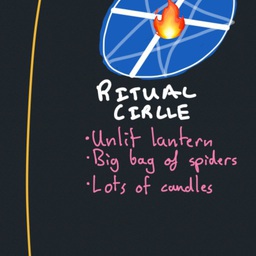 RITUAL
CIRLLE
• Unlit lantern
• Big bag of spiders
• Lots of candles